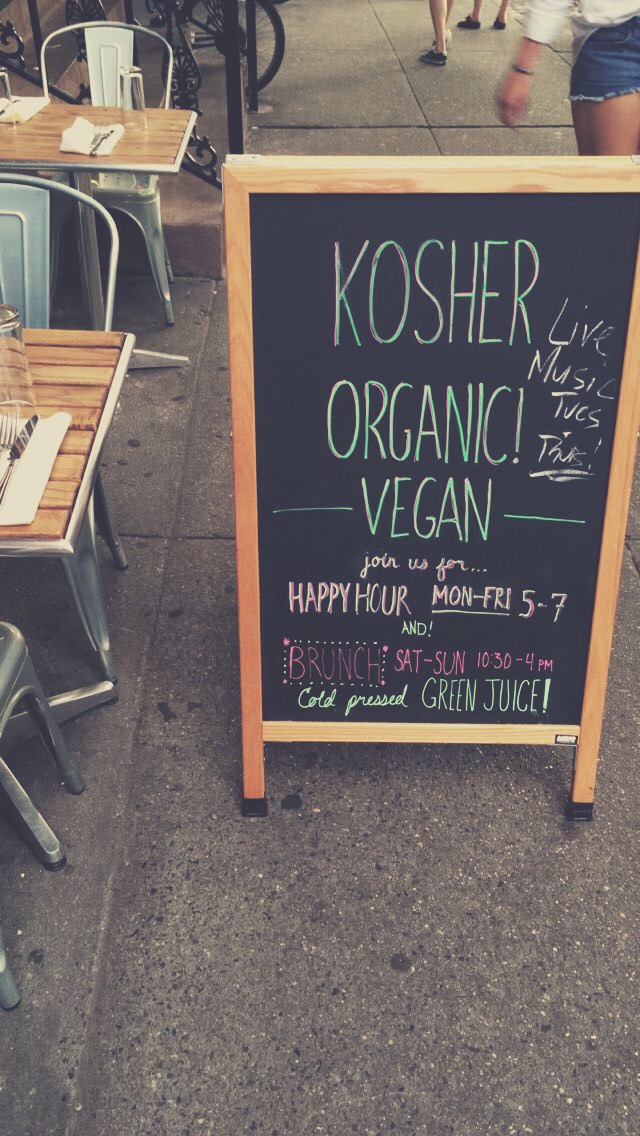 KOSHER
ORGANIC!
VEGAN
Live
Music
Tues
Thus!
join us for...
HAPPY HOUR MON-FRI 5-7
AND!
BRUNCH SAT-SUN 10:30-4 PM
Cold pressed GREEN JUICE!